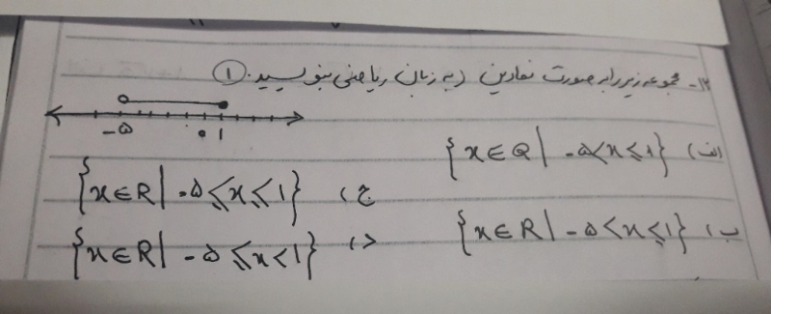 ۱۲- مجموعه زیر را به صورت نمادین (به زبان ریاضی بنویسید. ①
-۵ ۰ ۱
الف) {x∈Q | -۵<x≤۱}
ب) {x∈R | -۵<x≤۱}
ج) {x∈R | -۵≤x≤۱}
د) {x∈R | -۵≤x<۱}